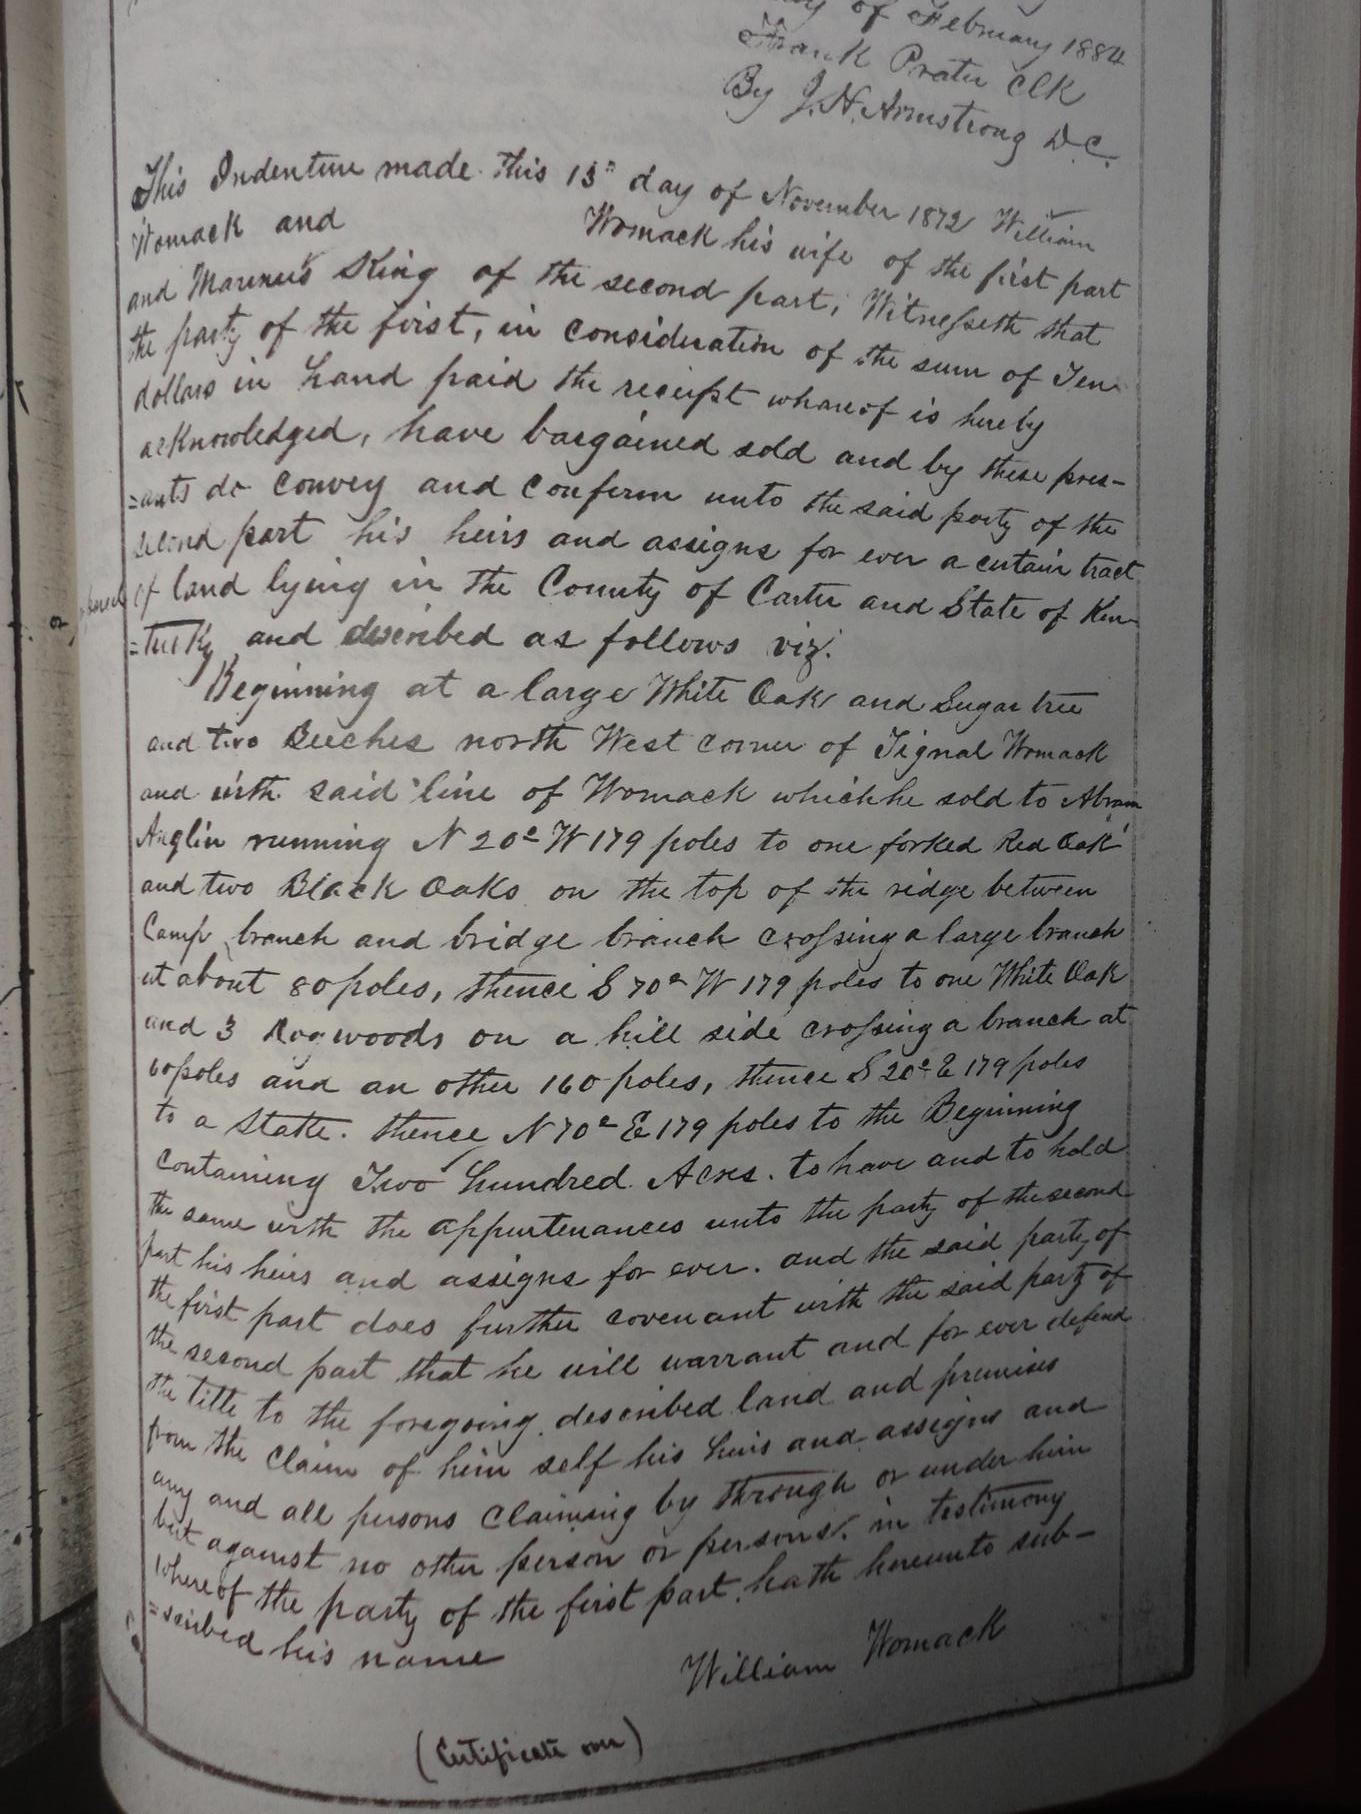 day of February 1884
Frank Prater Clk
By J. H. Armstrong D.C.
This Indenture made this 13" day of November 1872 William
Womack and Womack his wife of the first part
and Marenus King of the second part, Witnesseth that
the party of the first, in consideration of the sum of Ten
dollars in hand paid the receipt whareof is hereby
acknowledged, have bargained sold and by these pres-
=ants do convey and confirm unto the said party of the
second part his heirs and assigns for ever a certain tract
of land lying in the County of Carter and State of Ken-
=tucky and described as follows viz.
Beginning at a large White Oak and Sugar tree
and two Beeches north West corner of Tignal Womack
and with said line of Womack which he sold to Abram
Anglin running N 20° W 179 poles to one forked Red Oak
and two Black Oaks on the top of the ridge between
Camp branch and bridge branch crossing a large branch
at about 80 poles, thence S 70° W 179 poles to one White Oak
and 3 Dogwoods on a hill side crossing a branch at
60 poles and an other 160 poles, thence S 20° E 179 poles
to a State. thence N 70° E 179 poles to the Beginning
containing Two hundred Acres. to have and to hold
the same with the appurtenances unto the party of the second
part his heirs and assigns for ever. and the said party of
the first part does further covenant with the said party of
the second part that he will warrant and for ever defend
the title to the foregoing described land and premises
from the claim of him self his heirs and assigns and
any and all persons claiming by through or under him
but against no other person or persons. in testimony
whereof the party of the first part hath hereunto sub-
=scribed his name
William Womack
(Certificate over)